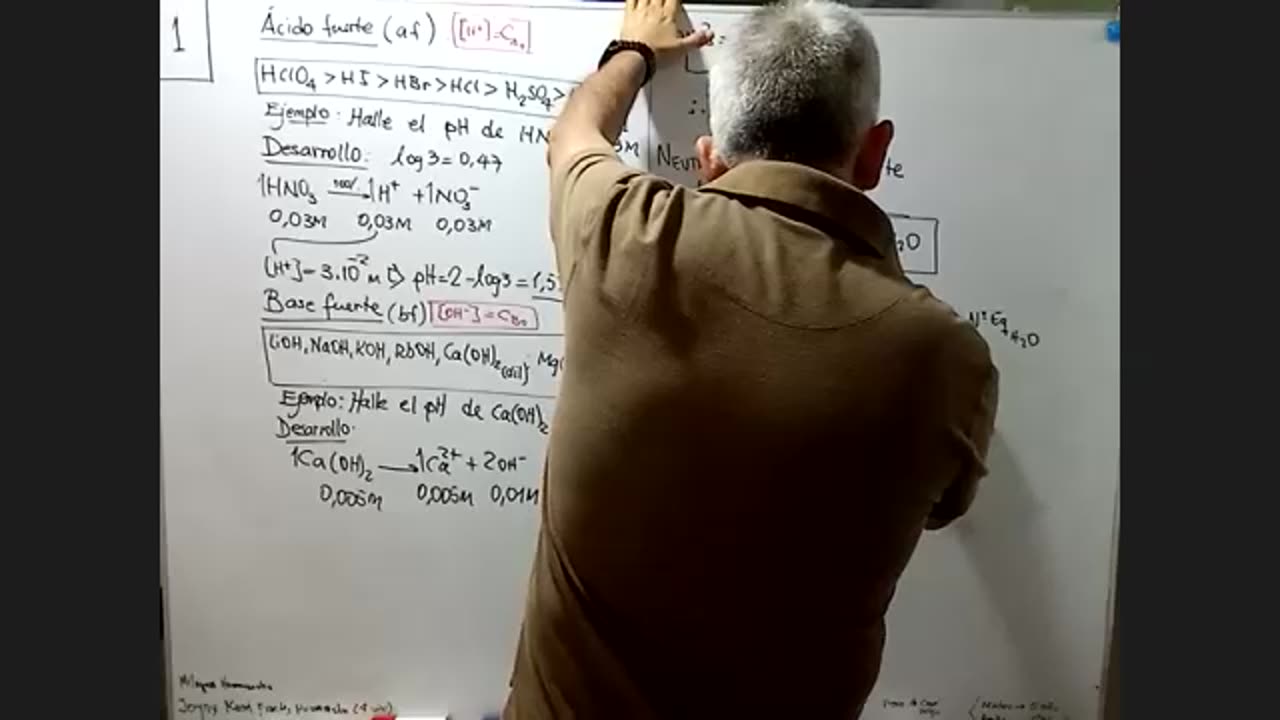 1
Ácido fuerte (af) [H⁺]=Cₐ₀
HClO₄ > HI > HBr > HCl > H₂SO₄ >
Ejemplo: Halle el pH de HN
Desarrollo: log3 = 0,47
1HNO₃ 100%→ 1H⁺ + 1NO₃⁻
0,03M 0,03M 0,03M
[H⁺] = 3.10⁻² M ⇨ pH = 2 - log3 = 1,5
Base fuerte (bf) [OH⁻] = C_B₀
LiOH, NaOH, KOH, RbOH, Ca(OH)₂(dil); Mg(
Ejemplo: Halle el pH de Ca(OH)₂
Desarrollo:
1Ca(OH)₂ → 1Ca²⁺ + 2OH⁻
0,005M 0,005M 0,01M
∴
NEUT te
₂O
N° Eq H₂O